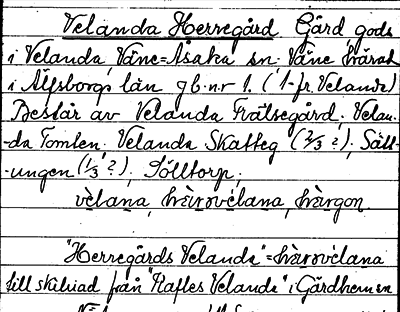 Velanda Herregård Gård gods
i Velanda, Väne=Åsaka sn. Väne härad
i Älfsborgs län gb.nr 1. (1-fr. Velanda)
Består av Velanda Frälsegård, Velan-
-da Tomten. Velanda Skatteg (2/3 ?), Säll-
-ungen (1/3 ?). Sölltorp.
vèlana, hærəvèlana, hærgon.
"Herregårds Velanda" = hærəvélana
till skilnad från "Rafles Velanda" i Gärdhem sn